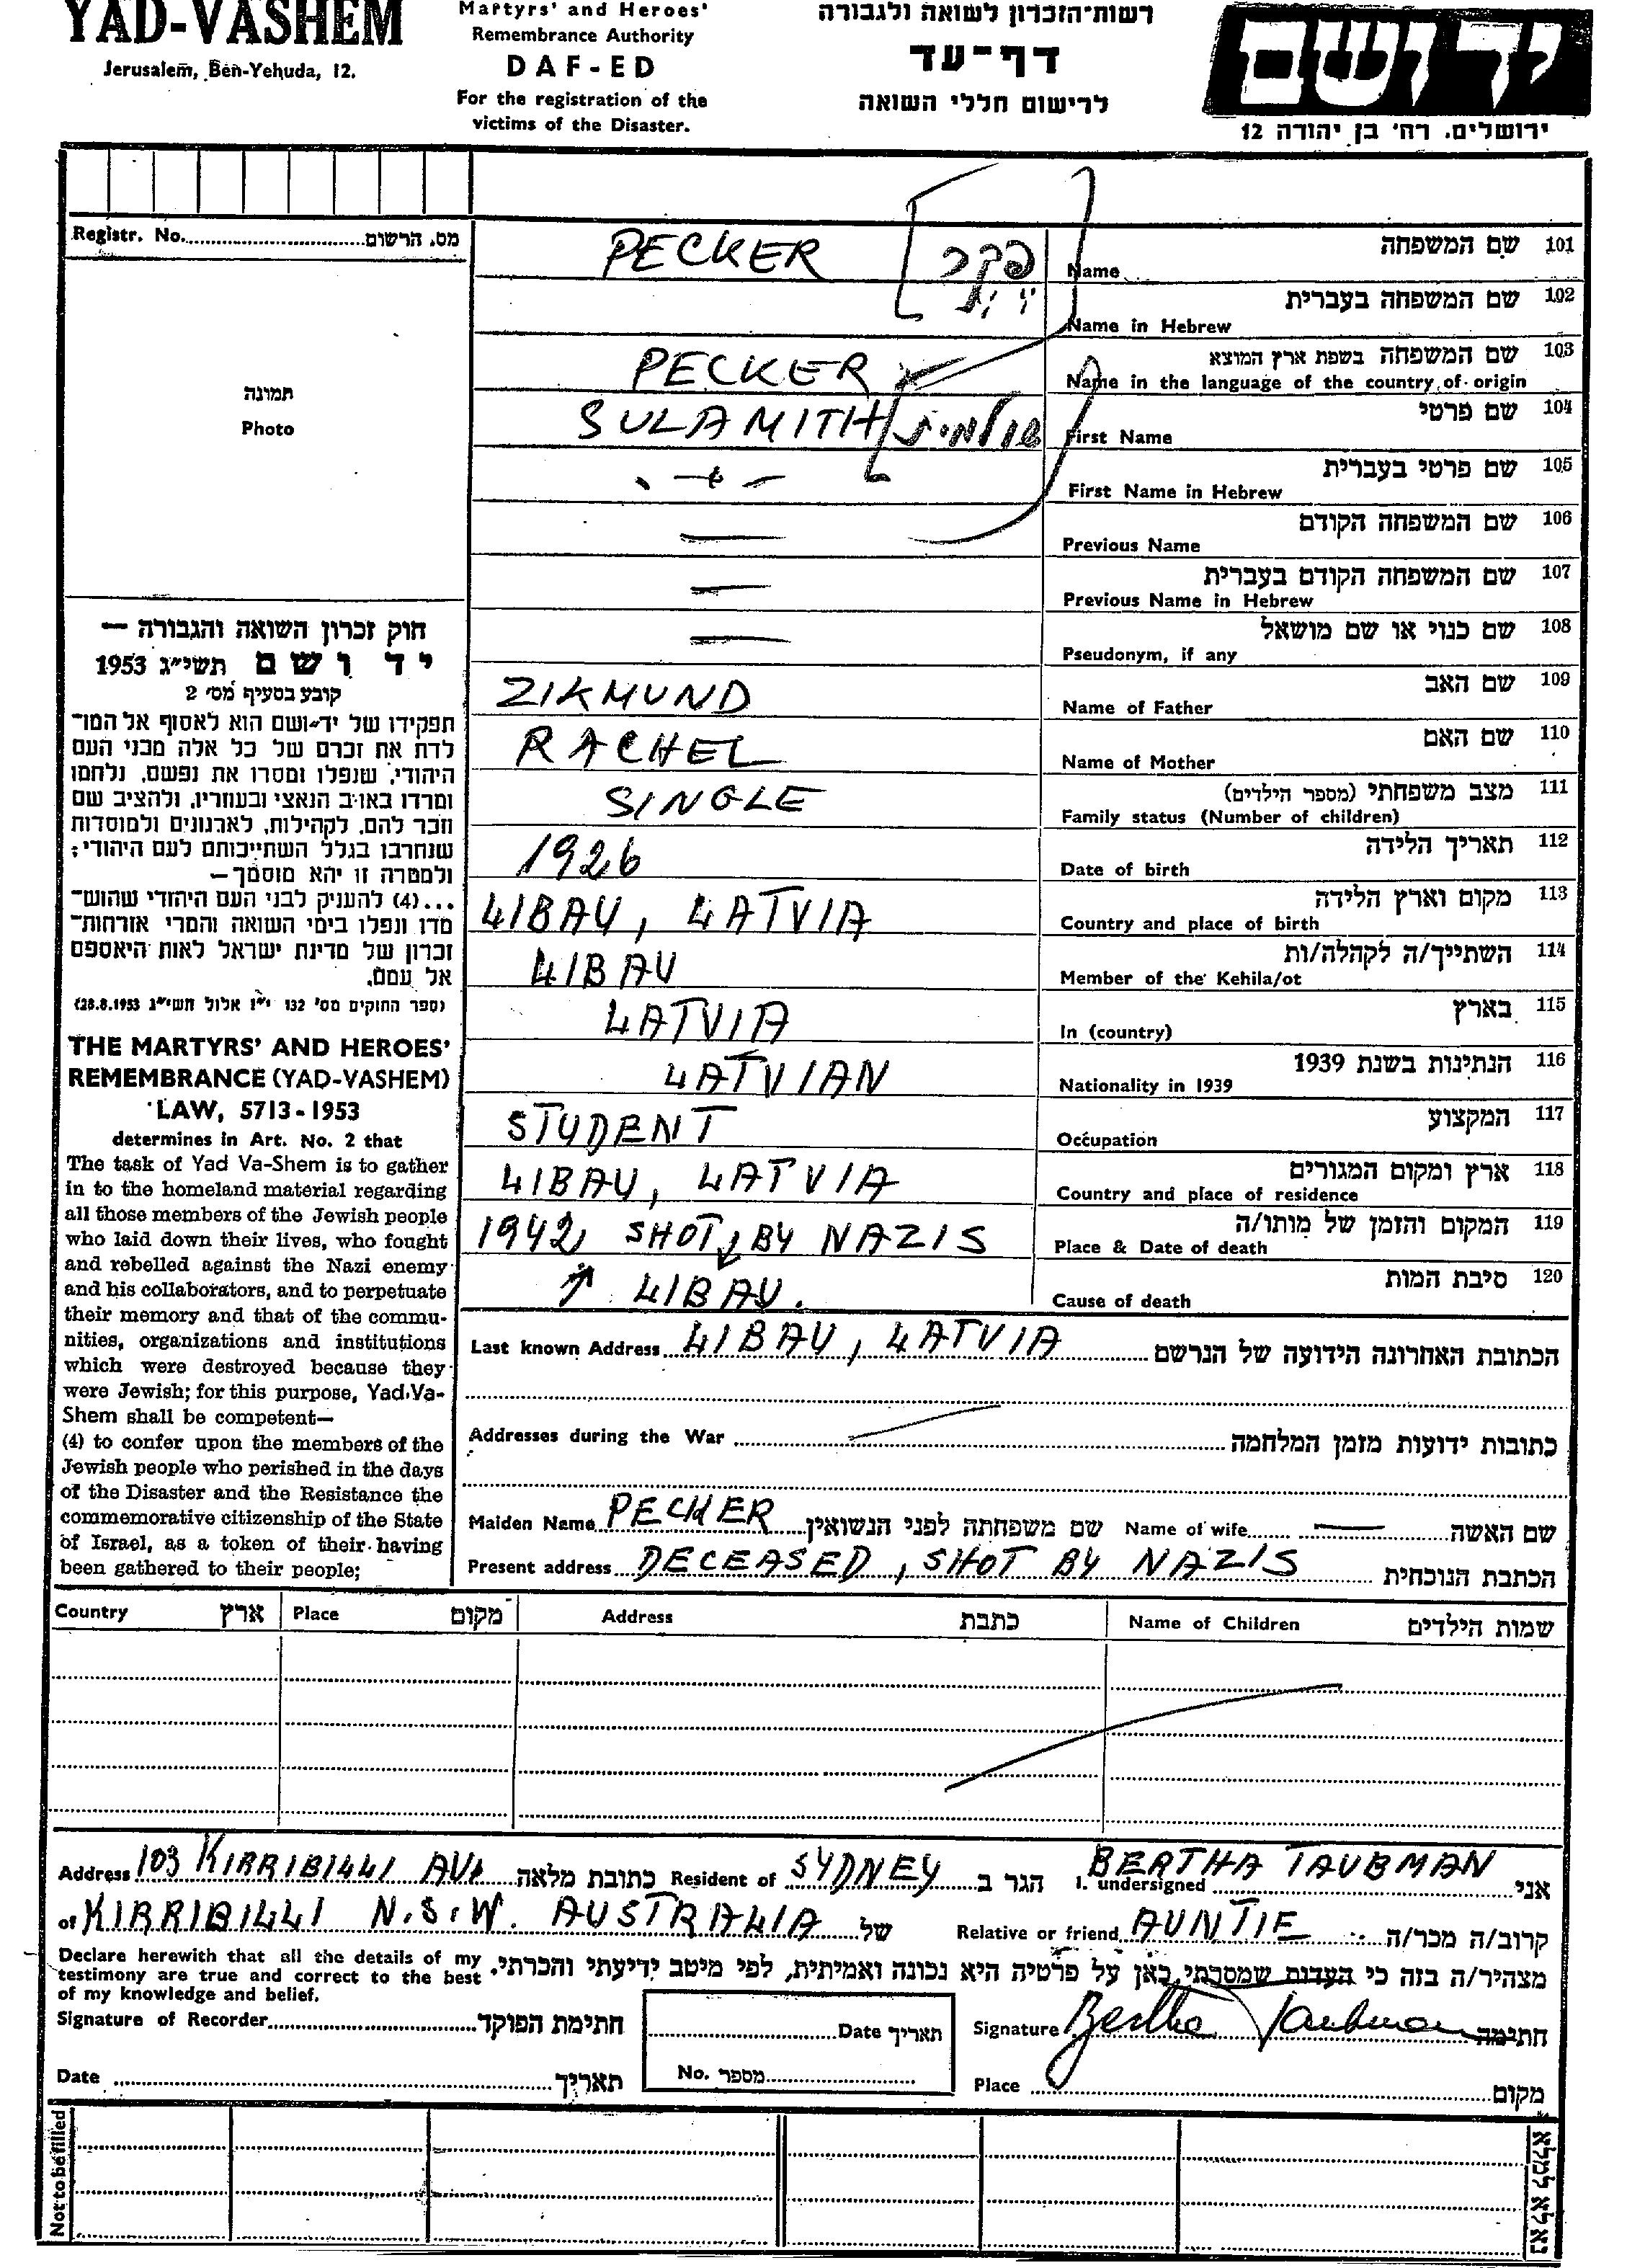 YAD-VASHEM
Jerusalem, Ben-Yehuda, 12.
Martyrs' and Heroes'
Remembrance Authority
DAF-ED
For the registration of the
victims of the Disaster.
רשות־הזכרון לשואה ולגבורה
דף־עד
לרישום חללי השואה
יד ושם
ירושלים. רח' בן יהודה 12
Registr. No. מס. הרשום
תמונה
Photo
חוק זכרון השואה והגבורה —
יד ושם תשי״ג 1953
קובע בסעיף מס' 2
תפקידו של יד־ושם הוא לאסוף אל המו־
לדת את זכרם של כל אלה מבני העם
היהודי, שנפלו ומסרו את נפשם, נלחמו
ומרדו באויב הנאצי ובעוזריו, ולהציב שם
וזכר להם, לקהילות, לארגונים ולמוסדות
שנחרבו בגלל השתייכותם לעם היהודי;
ולמטרה זו יהא מוסמך —
...(4) להעניק לבני העם היהודי שהוש־
מדו ונפלו בימי השואה והמרי אזרחות־
זכרון של מדינת ישראל לאות היאספם
אל עמם.
(ספר החוקים מס' 132 י״ז אלול תשי״ג 28.8.1953)
THE MARTYRS' AND HEROES'
REMEMBRANCE (YAD-VASHEM)
LAW, 5713-1953
determines in Art. No. 2 that
The task of Yad Va-Shem is to gather
in to the homeland material regarding
all those members of the Jewish people
who laid down their lives, who fought
and rebelled against the Nazi enemy
and his collaborators, and to perpetuate
their memory and that of the commu-
nities, organizations and institutions
which were destroyed because they
were Jewish; for this purpose, Yad Va-
Shem shall be competent—
(4) to confer upon the members of the
Jewish people who perished in the days
of the Disaster and the Resistance the
commemorative citizenship of the State
of Israel, as a token of their having
been gathered to their people;
PECKER פקר Name שם המשפחה 101
Name in Hebrew שם המשפחה בעברית 102
PECKER Name in the language of the country of origin שם המשפחה בשפת ארץ המוצא 103
SULAMITH שולמית First Name שם פרטי 104
First Name in Hebrew שם פרטי בעברית 105
Previous Name שם המשפחה הקודם 106
Previous Name in Hebrew שם המשפחה הקודם בעברית 107
Pseudonym, if any שם כנוי או שם מושאל 108
ZIKMUND Name of Father שם האב 109
RACHEL Name of Mother שם האם 110
SINGLE Family status (Number of children) מצב משפחתי (מספר הילדים) 111
1926 Date of birth תאריך הלידה 112
LIBAU, LATVIA Country and place of birth מקום וארץ הלידה 113
LIBAU Member of the Kehila/ot השתייך/ה לקהלה/ות 114
LATVIA In (country) בארץ 115
LATVIAN Nationality in 1939 הנתינות בשנת 1939 116
STUDENT Occupation המקצוע 117
LIBAU, LATVIA Country and place of residence ארץ ומקום המגורים 118
1942 SHOT BY NAZIS Place & Date of death המקום והזמן של מותו/ה 119
LIBAU. Cause of death סיבת המות 120
Last known Address LIBAU, LATVIA הכתובת האחרונה הידועה של הנרשם
Addresses during the War כתובות ידועות מזמן המלחמה
Maiden Name PECKER שם משפחתה לפני הנשואין Name of wife שם האשה
Present address DECEASED, SHOT BY NAZIS הכתבת הנוכחית
Country ארץ Place מקום Address כתבת Name of Children שמות הילדים
Address 103 KIRRIBILLI AVE כתובת מלאה Resident of SYDNEY הגר ב I. undersigned BERTHA TAUBMAN אני
of KIRRIBILLI N.S.W. AUSTRALIA של Relative or friend AUNTIE קרוב/ה מכר/ה
Declare herewith that all the details of my
testimony are true and correct to the best
of my knowledge and belief.
מצהיר/ה בזה כי העדות שמסרתי כאן על פרטיה היא נכונה ואמיתית, לפי מיטב ידיעתי והכרתי.
Signature of Recorder חתימת הפוקד Date תאריך Signature Bertha Taubman חתימה
Date תאריך No. מספר Place מקום
Not to be filled נא לא למלא